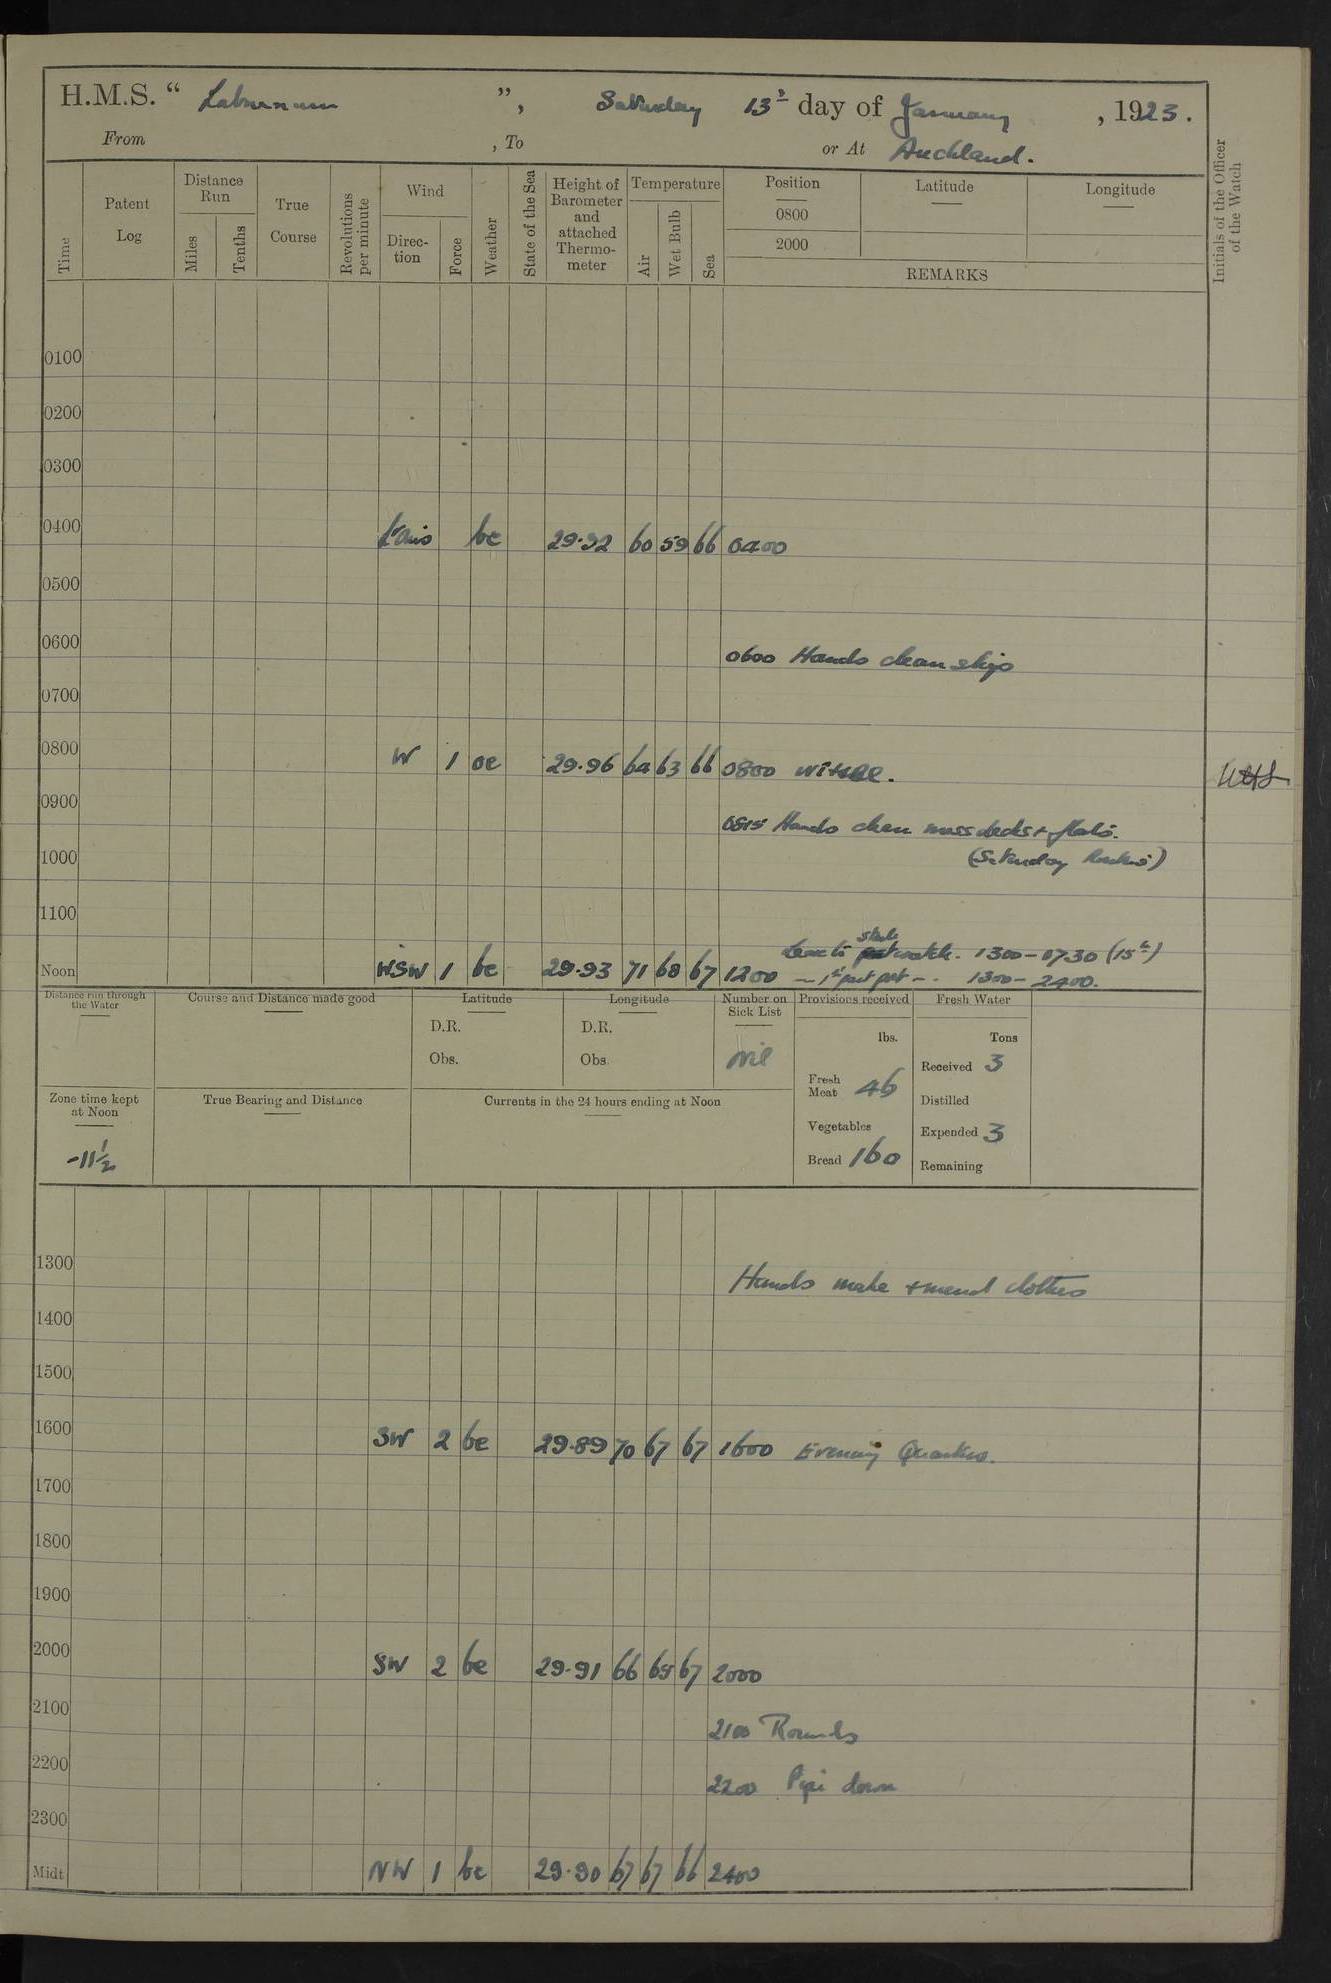 H.M.S. “ Laburnum ”, Saturday 13th day of January, 1923.
From , To or At Auckland.
Time Patent Log Distance Run Miles Tenths True Course Revolutions per minute Wind Direc-tion Force Weather State of the Sea Height of Barometer and attached Thermo-meter Temperature Air Wet Bulb Sea Position 0800 2000 Latitude Longitude
REMARKS
Initials of the Officer of the Watch
0100
0200
0300
0400 bc 29.92 60 59 66 0400
0500
0600 0600 Hands clean ship
0700
0800 W 1 oc 29.96 64 63 66 0800
0900 0815 Hands clean mess decks + flats.
1000 (Saturday Routine)
1100
Leave to stbd watch. 1300 - 0730 (15th)
Noon WSW 1 bc 29.93 71 68 67 1200 - 1st part port - . 1300 - 2400.
Distance run through the Water
Course and Distance made good
Latitude
D.R.
Obs.
Longitude
D.R.
Obs.
Number on Sick List
Nil
Provisions received
lbs.
Fresh Meat 46
Vegetables
Bread 160
Fresh Water
Tons
Received 3
Distilled
Expended 3
Remaining
Zone time kept at Noon
-11½
True Bearing and Distance
Currents in the 24 hours ending at Noon
1300 Hands make + mend clothes
1400
1500
1600 SW 2 bc 29.89 70 67 67 1600 Evening Quarters.
1700
1800
1900
2000 SW 2 bc 29.91 66 65 67 2000
2100 2100 Rounds
2200 2200 Pipe down
2300
Midt. NW 1 bc 29.90 67 67 66 2400